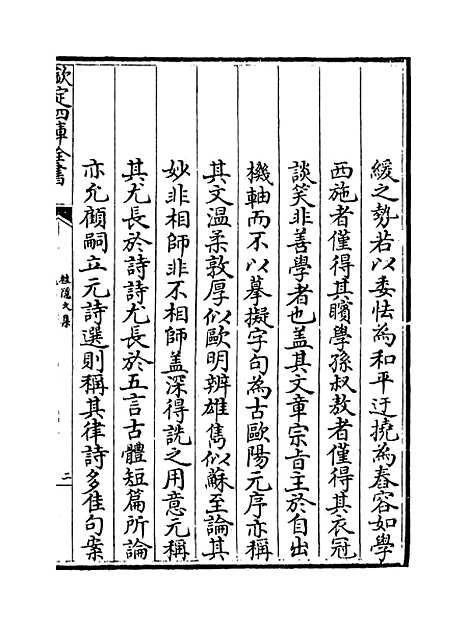 緩之勢若以委怯為和平迂撓為舂容如學
西施者僅得其矉學孫叔敖者僅得其衣冠
談笑非善學者也盖其文章宗旨主於自出
機軸而不以摹擬字句為古歐陽元序亦稱
其文温柔敦厚似歐明辨雄雋似蘇至論其
妙非相師非不相師盖深得詵之用意元稱
其尤長於詩詩尤長於五言古體短篇所論
亦允顧嗣立元詩選則稱其律詩多佳句案
欽定四庫全書
桂隱文集
二